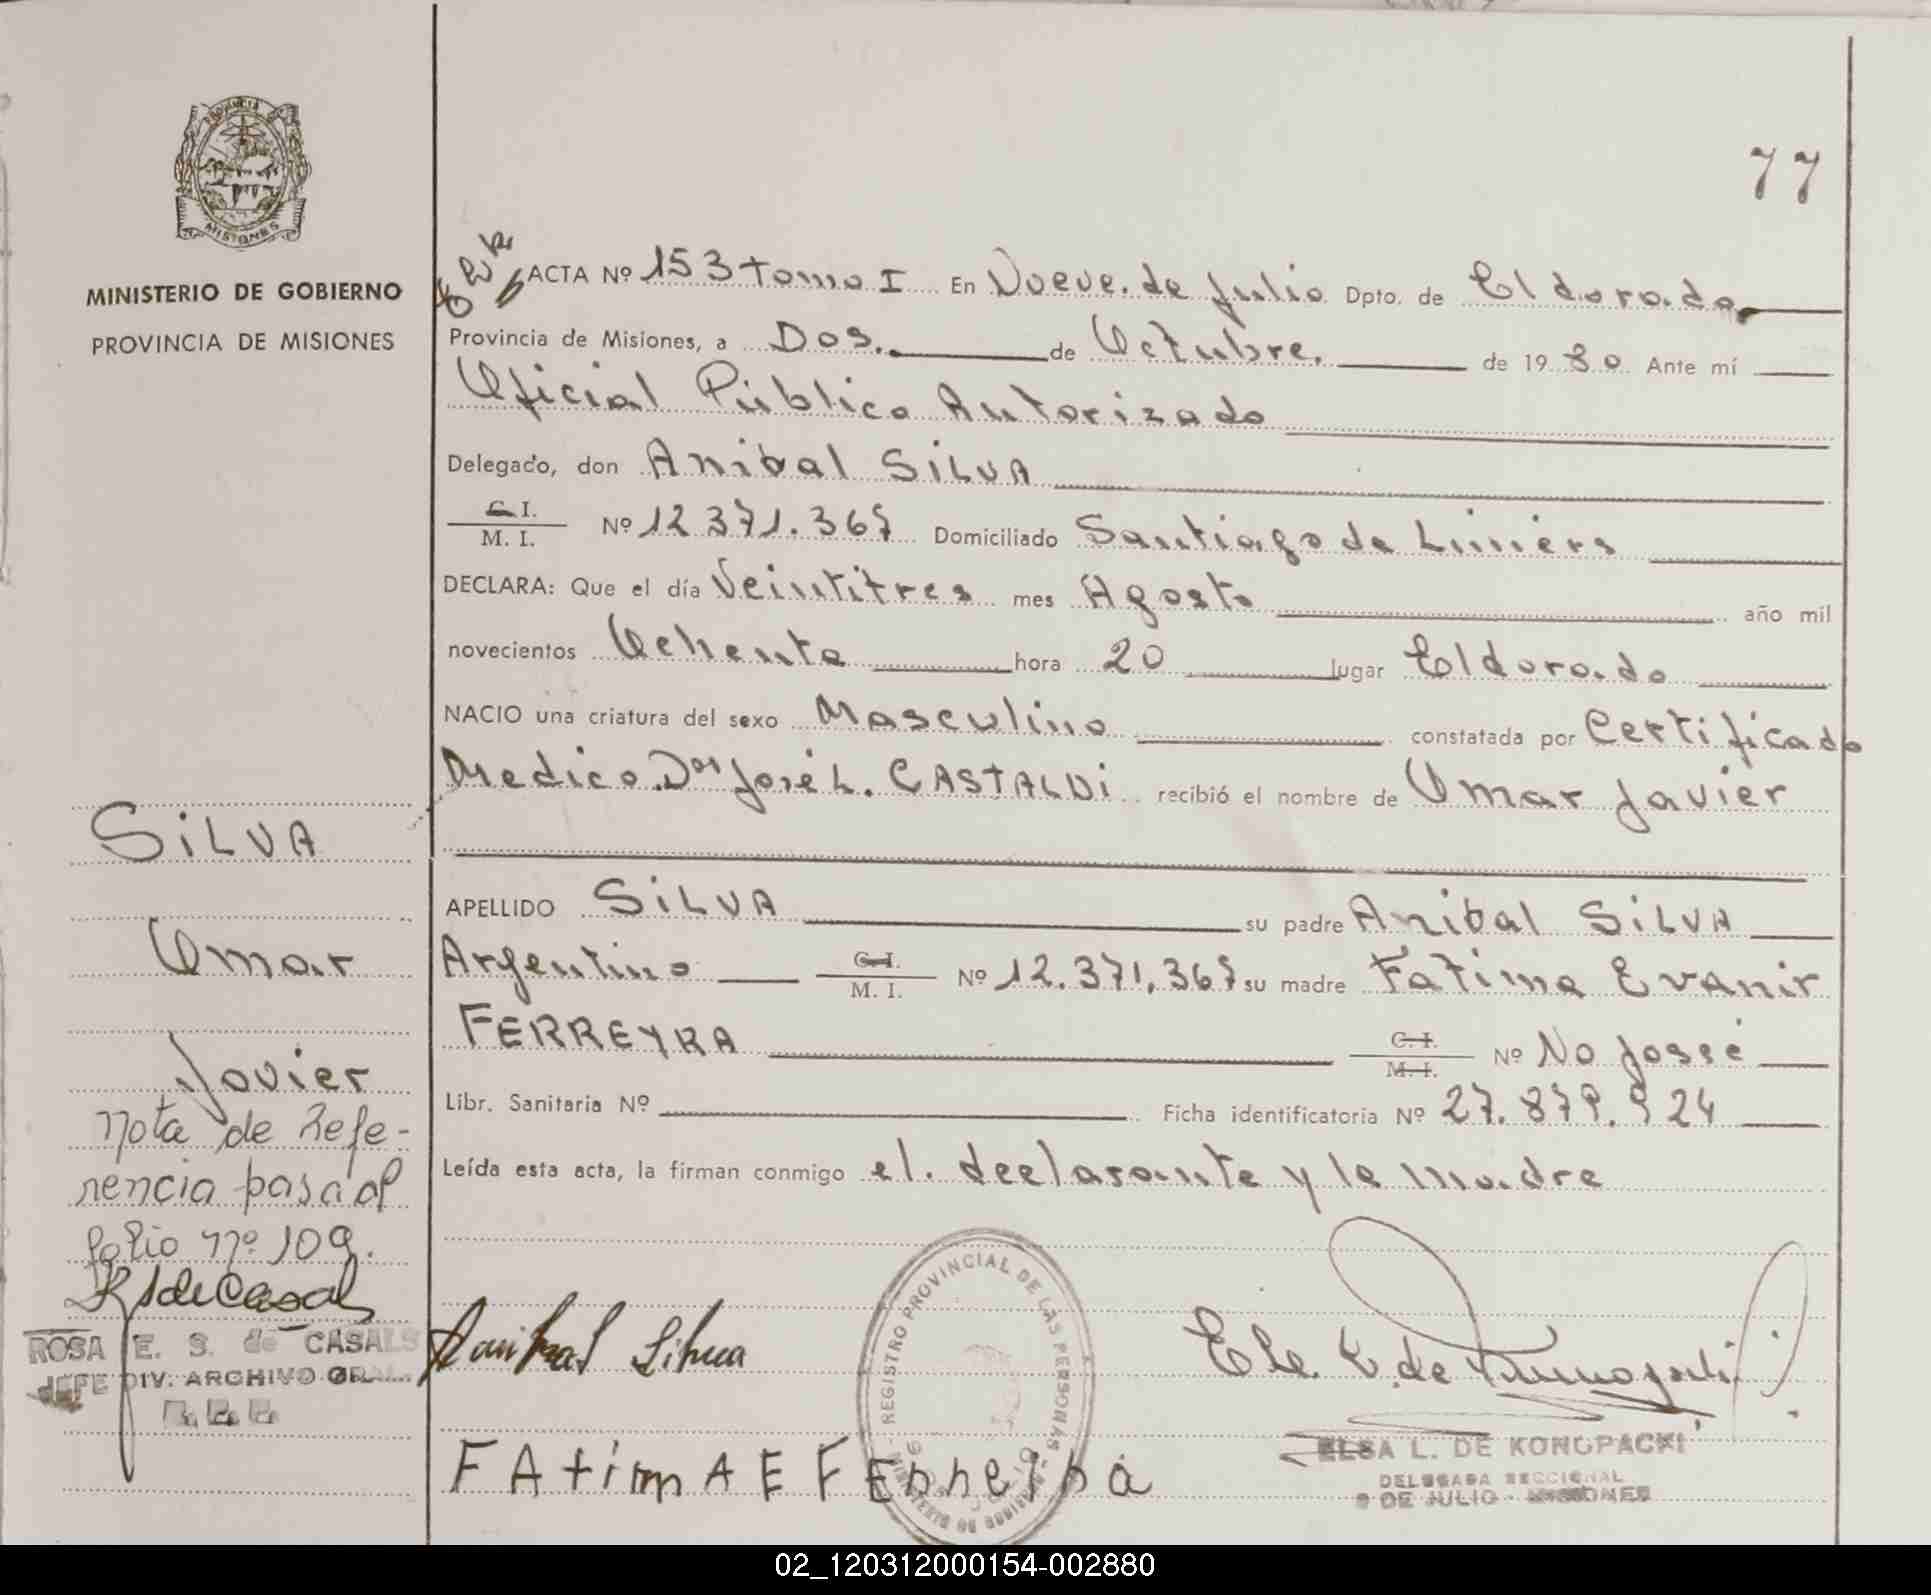 77
PROVINCIA
MISIONES
MINISTERIO DE GOBIERNO
PROVINCIA DE MISIONES
ACTA Nº 153 tomo I En Nueve de Julio Dpto. de Eldorado
Provincia de Misiones, a Dos. de Octubre. de 1980 Ante mí
Oficial Público Autorizado
Delegado, don Anibal SiLVA
C. I.
M. I. Nº 12.371.367 Domiciliado Santiago de Liniers
DECLARA: Que el día Veintitres mes Agosto año mil
novecientos Ochenta hora 20 lugar Eldorado
NACIO una criatura del sexo Masculino constatada por Certificado
Medico. Dor José L. CASTALDi recibió el nombre de Omar Javier
APELLIDO SiLVA su padre Anibal SiLVA
Argentino C. I.
M. I. Nº 12.371.367 su madre Fatima Evanir
FERREYRA C. I.
M. I. Nº No Possé
Libr. Sanitaria Nº Ficha identificatoria Nº 27.879.924
Leída esta acta, la firman conmigo el declarante y la madre
SiLVA
Omar
Javier
Nota de Refe-
rencia pasa al
folio nº 109.
RSdeCasal
ROSA E. S. de CASALS
JEFE DIV. ARCHIVO GRAL.
Anibal Silva
REGISTRO PROVINCIAL DE LAS PERSONAS
MINISTERIO DE GOBIERNO
FAtimA E FErreira
ELSA L. DE KONOPACKI
DELEGADA SECCIONAL
9 DE JULIO - MISIONES
02_120312000154-002880